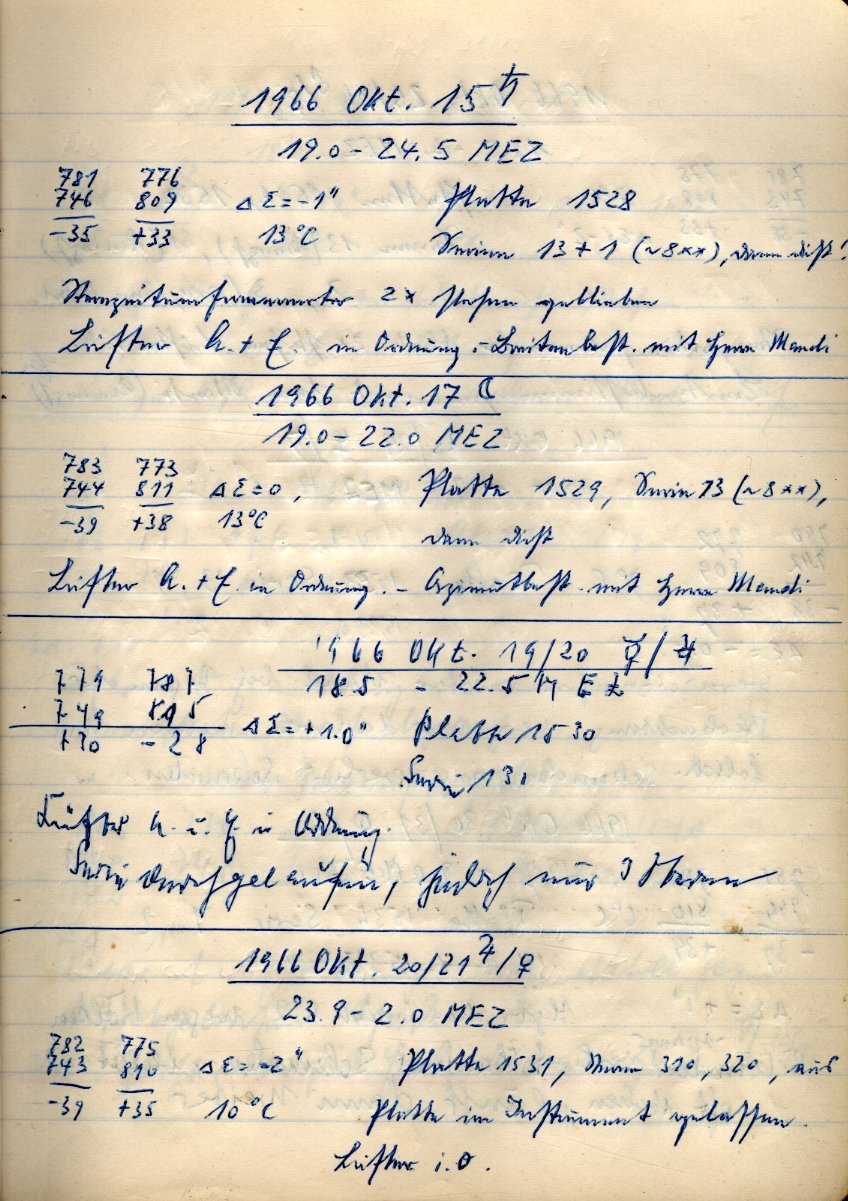 1966 Okt. 15 ♄
19.0 – 24.5 MEZ
781 776
746 809 Δ Σ = –1" Platte 1528
–35 +33 13°C Serien 13 + 1 (~8**), dann dicht!
2x stehen geblieben
Lüfter A. + E. in Ordnung. – Breitenbest. mit Herrn Mandi
1966 Okt. 17 ☾
19.0 – 22.0 MEZ
783 773
744 811 Δ Σ = 0, Platte 1529, Serie 13 (~8**),
–39 +38 13°C dann dicht
Lüfter A. + E. in Ordnung. – Azimutbest. mit Herrn Mandi
1966 Okt. 19/20 ☿/♃
18.5 – 22.5 MEZ
779 787
749 815 Δ Σ = +1.0" Platte 1530
+30 –28
Serie 13
Lüfter A. u. E. in Ordnung.
Serie durchgelaufen, jedoch nur 9 Sterne
1966 Okt. 20/21 ♃/♀
23.9 – 2.0 MEZ
782 775
743 810 Δ Σ = –2" Platte 1531, 310, 320, aus
–39 +35 10°C Platte im Instrument gelassen.
Lüfter i.O.